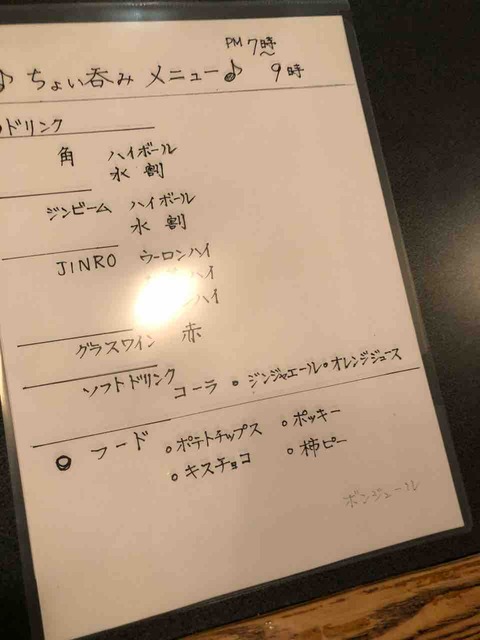 PM 7時
〜
♪ ちょい呑み メニュー♪ 9時
ドリンク
角 ハイボール
水割
ジンビーム ハイボール
水割
JINRO ウーロンハイ
ハイ
ハイ
グラスワイン 赤
ソフトドリンク コーラ・ジンジャエール・オレンジジュース
○ フード ○ポテトチップス ○ポッキー
○キスチョコ ○柿ピー
ボンジュール